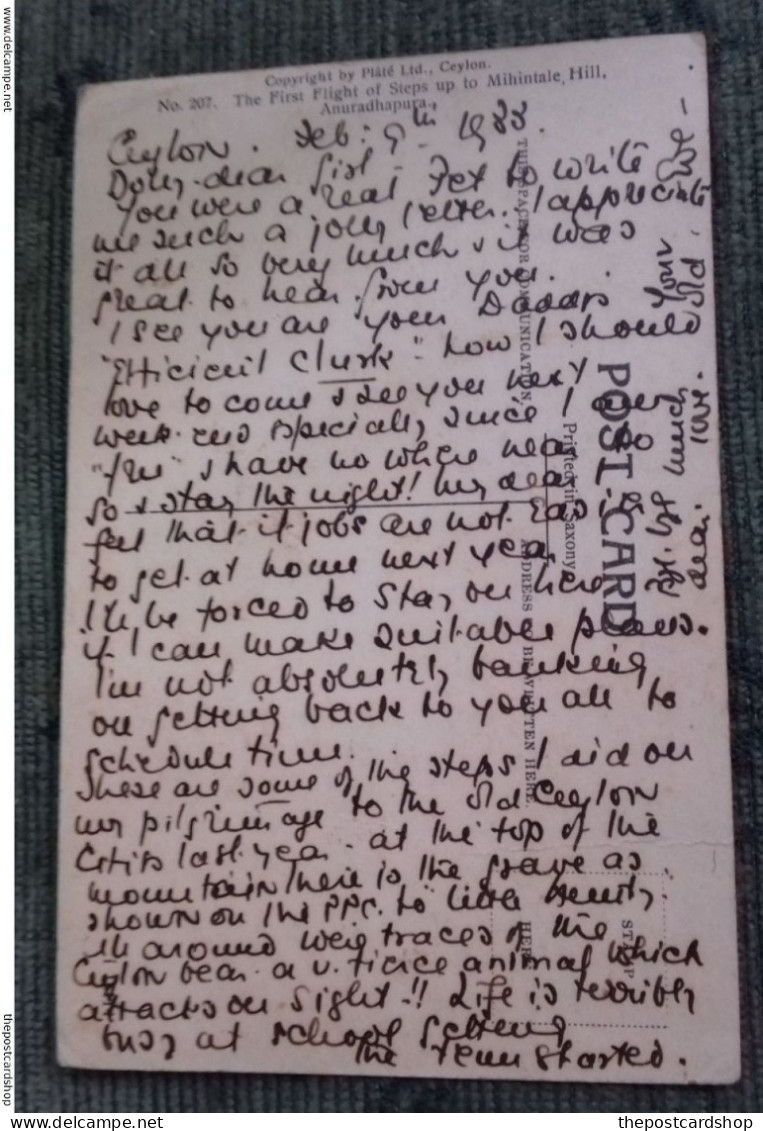 www.delcampe.net
Copyright by Plâté Ltd., Ceylon.
No. 207. The First Flight of Steps up to Mihintale Hill,
Anuradhapura.
Ceylon. Feb: 9th 1933.
dear Girl -
You were a real Pet to write
me such a jolly letter. I appreciate
it all so very much & it was
great to hear from you.
I see you are your Daddy's
"Efficient Clerk" - how I should
love to come & see you next
week-end especially, since I am
"free" & have no where near
so & stay the night! My dear I
feel that if jobs are not easy
to get at home next year
I'll be forced to stay on here
if I can make suitable plans.
I'm not absolutely banking
on getting back to you all to
schedule time.
These are some of the steps I did on
my pilgrimage to the old Ceylon
Cities last year. at the top of the
mountain there is the grave as
shown on the PPC. to
All around were traces of the
Ceylon bear - a v. fierce animal which
attacks on sight!! Life is terribly
busy at school getting
the Term started.
Your old
much
love
dear.
THIS SPACE FOR COMMUNICATION,
Printed in Saxony
POST CARD
ADDRESS BE WRITTEN HERE.
STAMP
HERE
thepostcardshop
thepostcardshop